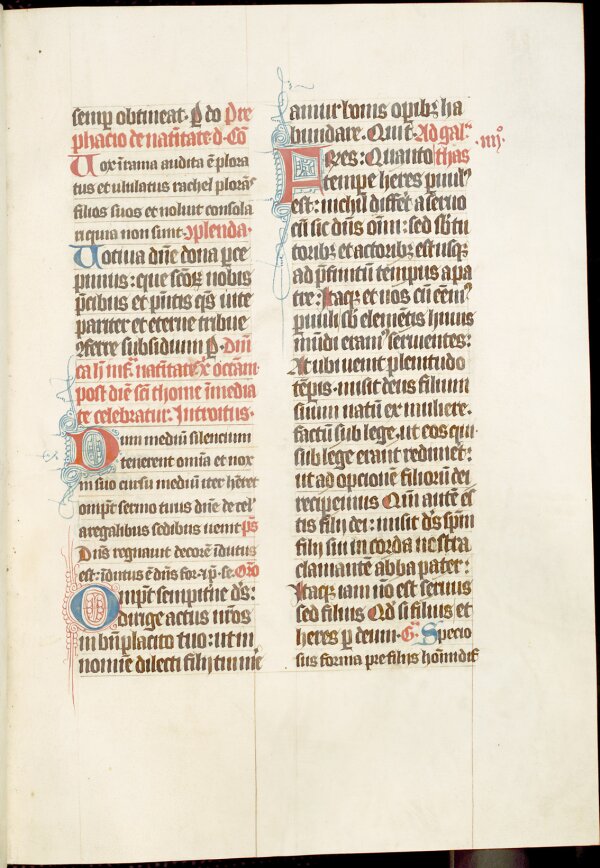 semp obtineat. P do Pre
phacio de natītate d. Cō
Vox ī rama audita ē plora
tus et ululatus rachel ploraꝰ
filios suos et noluit consola
ri quia non sunt. 9plenda.
Votiua dn̄e dona perce
pimus: que scōꝝ nobis
p̄cibus et p̄ntis q̄s uite
pariter et eterne tribue
9ferre subsidium P. Dn̄i
ca īf. natītatē octām.
post diē scī thome īmedia
te celebratur. Introitus.
Dum mediū silencium
tenerent omīa et nox
in suo cursu mediū iter hēret
omp̄t sermo tuus dn̄e de cel'
a regalibus sedibus uenit ps̄
Dn̄s regnauit decorē īdutus
est: īdutus ē dn̄s for. Oro
Omp̄t sempitne d̄s:
dirige actus nr̄os
in bn̄placito tuo: ut in
nomīe dilecti filij tui me
amur bonis opibꝫ ha
bundare. Qui t. Ad gal.
Fres: Quanto thas .iiij.
tempe heres puulꝰ
est: nichil differt a seruo
cū sit dn̄s oīm: sed sb tu
toribꝫ et actoribꝫ est usqꝫ
ad p̄finitū tempus a pa
tre: Itaqꝫ et nos cū eēmꝰ
puuli sb elemētis huius
mūdi eramꝰ seruientes:
At ubi uenit plenitudo
tēpis. misit deus filium
suum natū ex muliere.
factū sub lege. ut eos qui
sub lege erant redimēt:
ut adopcionē filiorū dei
recipemus Qm̄ autē es
tis filij dei: misit d̄s spm̄
filij sui in corda nostra
clamantē abba pater:
Itaqꝫ iam nō est seruus
sed filius Qd̄ si filius et
heres p deum. G. Specio
sus forma pre filijs hoīm dif